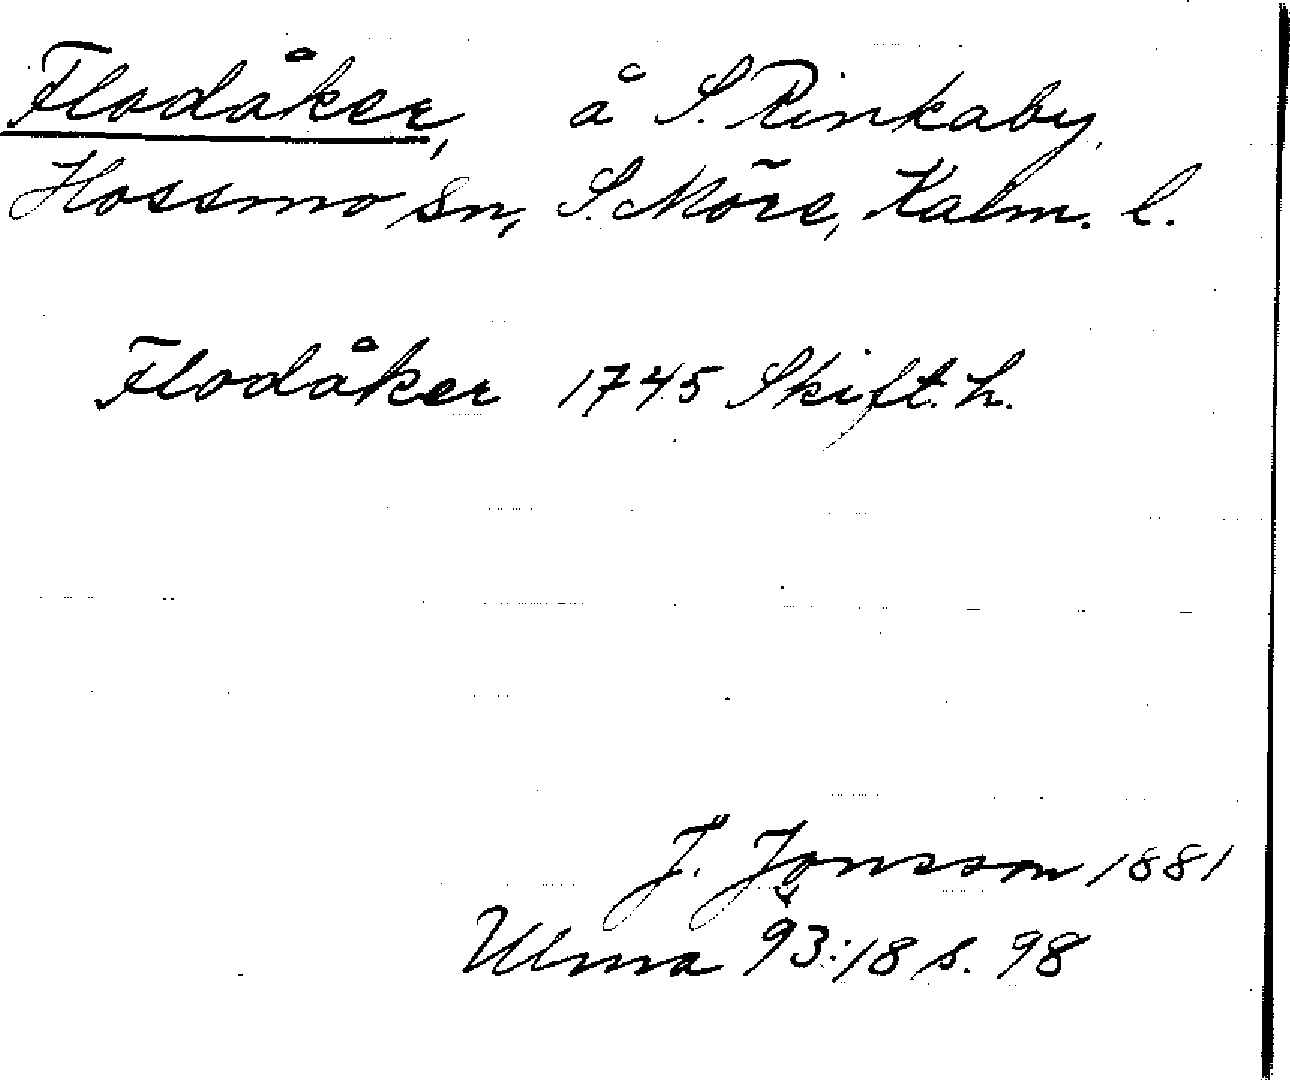 Flodåker, å S. Rinkaby,
Hossmo sn, S. Möre, Kalm. l.
Flodåker 1745 Skift. h.
J. Jonsson 1881
Ulma 93:18 s. 98